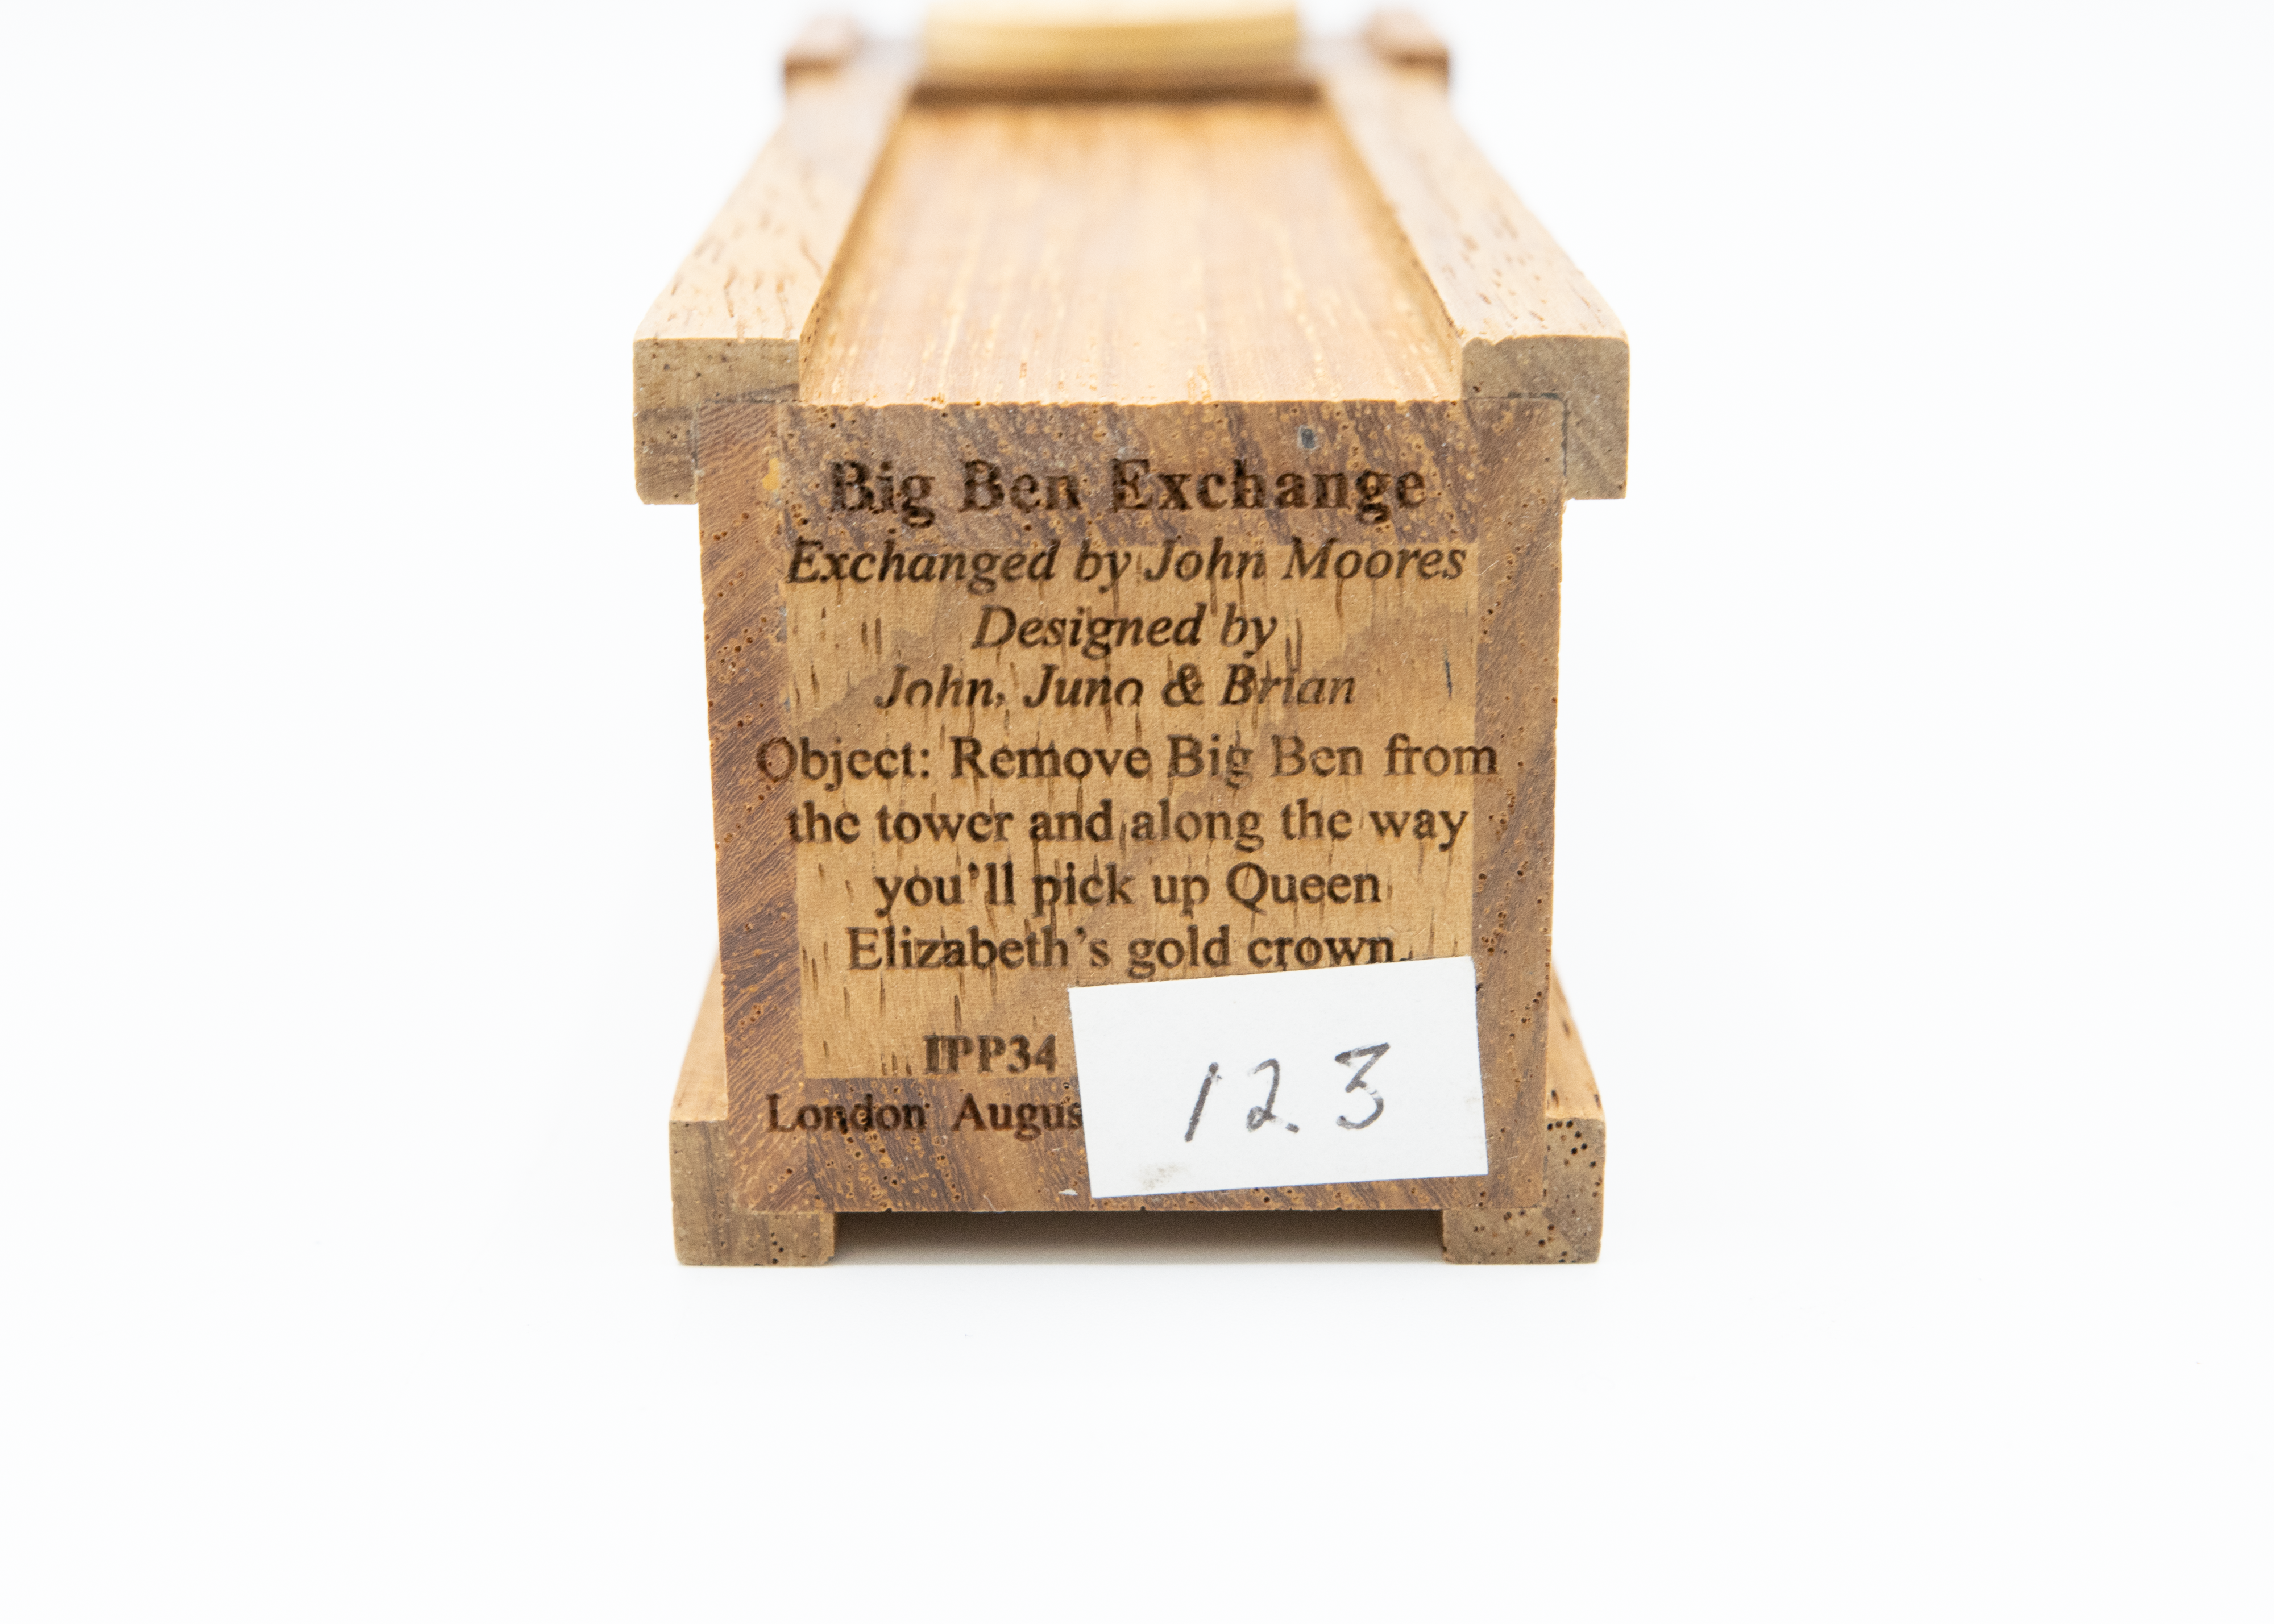 Big Ben Exchange
Exchanged by John Moores
Designed by
John, Juno & Brian
Object: Remove Big Ben from
the tower and along the way
you'll pick up Queen
Elizabeth's gold crown.
IPP34
London Augus
123